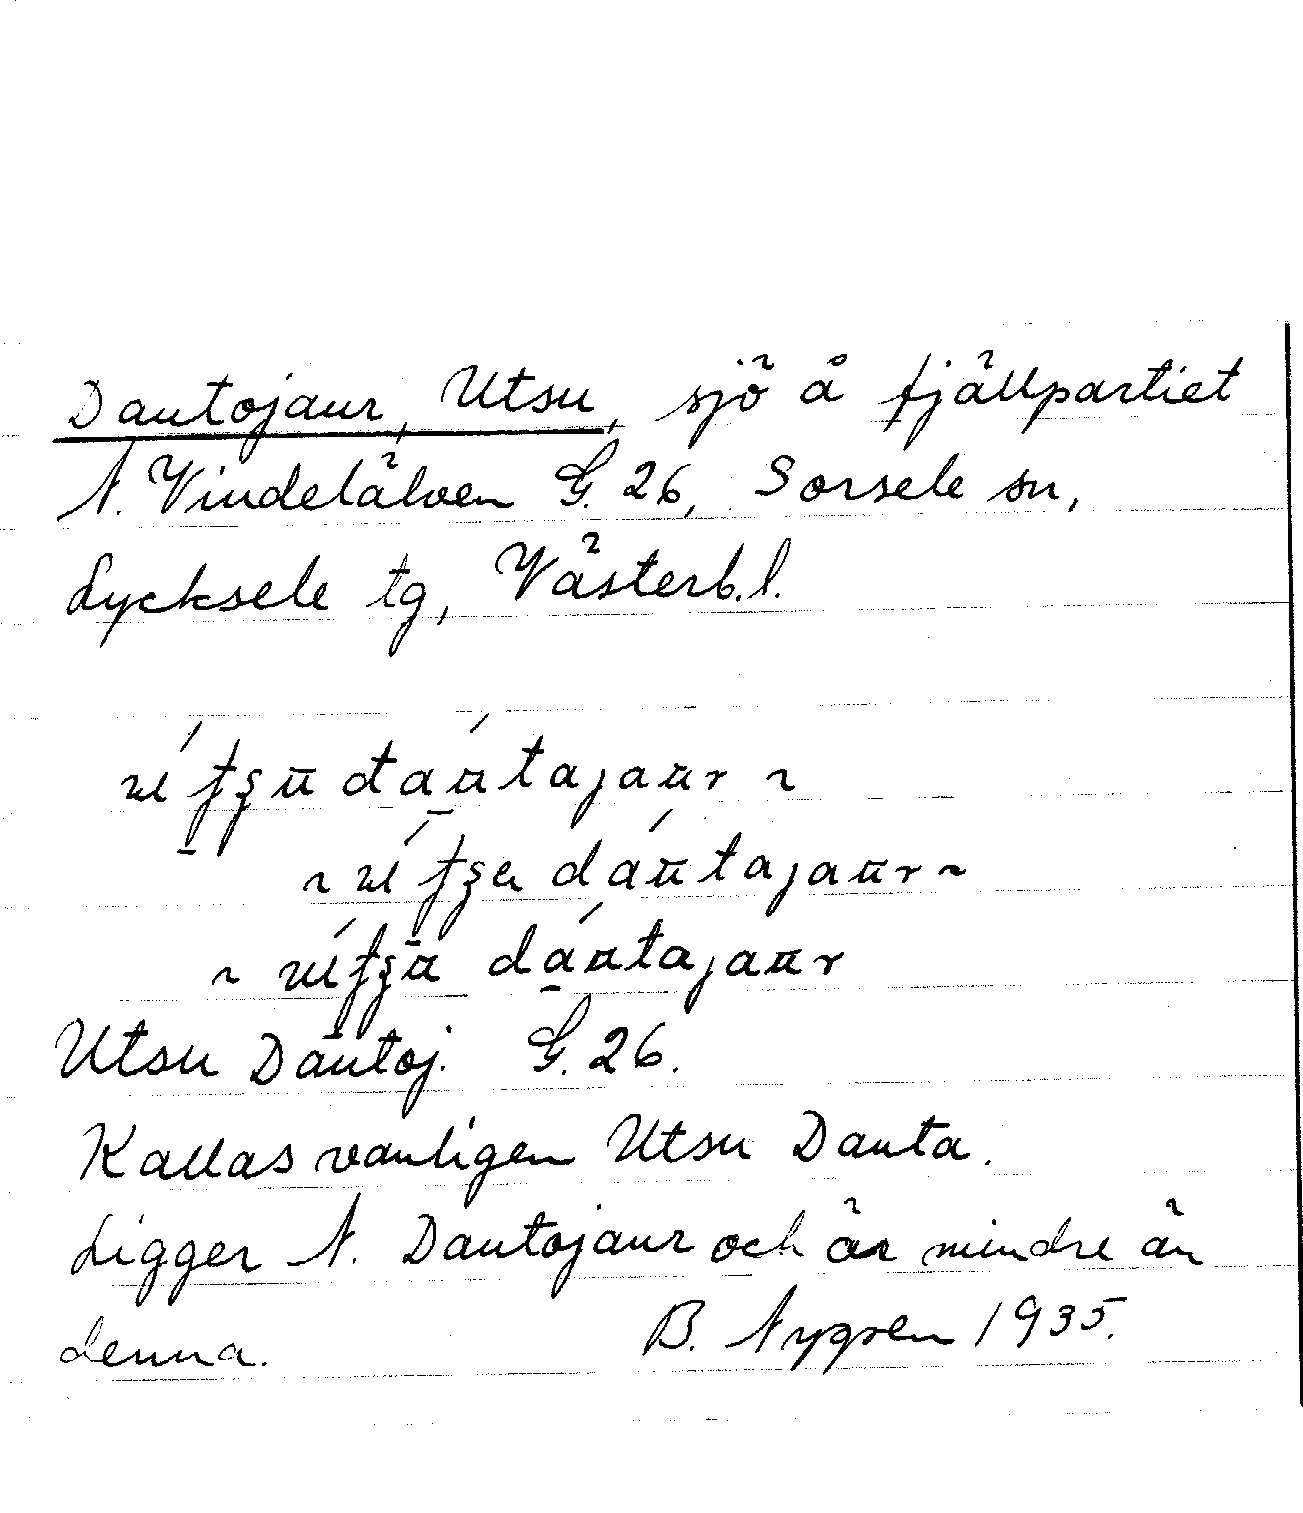 Dautojaur, Utsu, sjö å fjällpartiet
N. Vindelälven G. 26, Sorsele sn,
Lycksele tg, Västerb.l.
dautajaur ~
~ dautajaur ~
~ dautajaur
Utsu Dautoj. G. 26.
Kallas vanligen Utsu Dauta.
Ligger N. Dautojaur och är mindre än
denna. B. Nygren 1935.